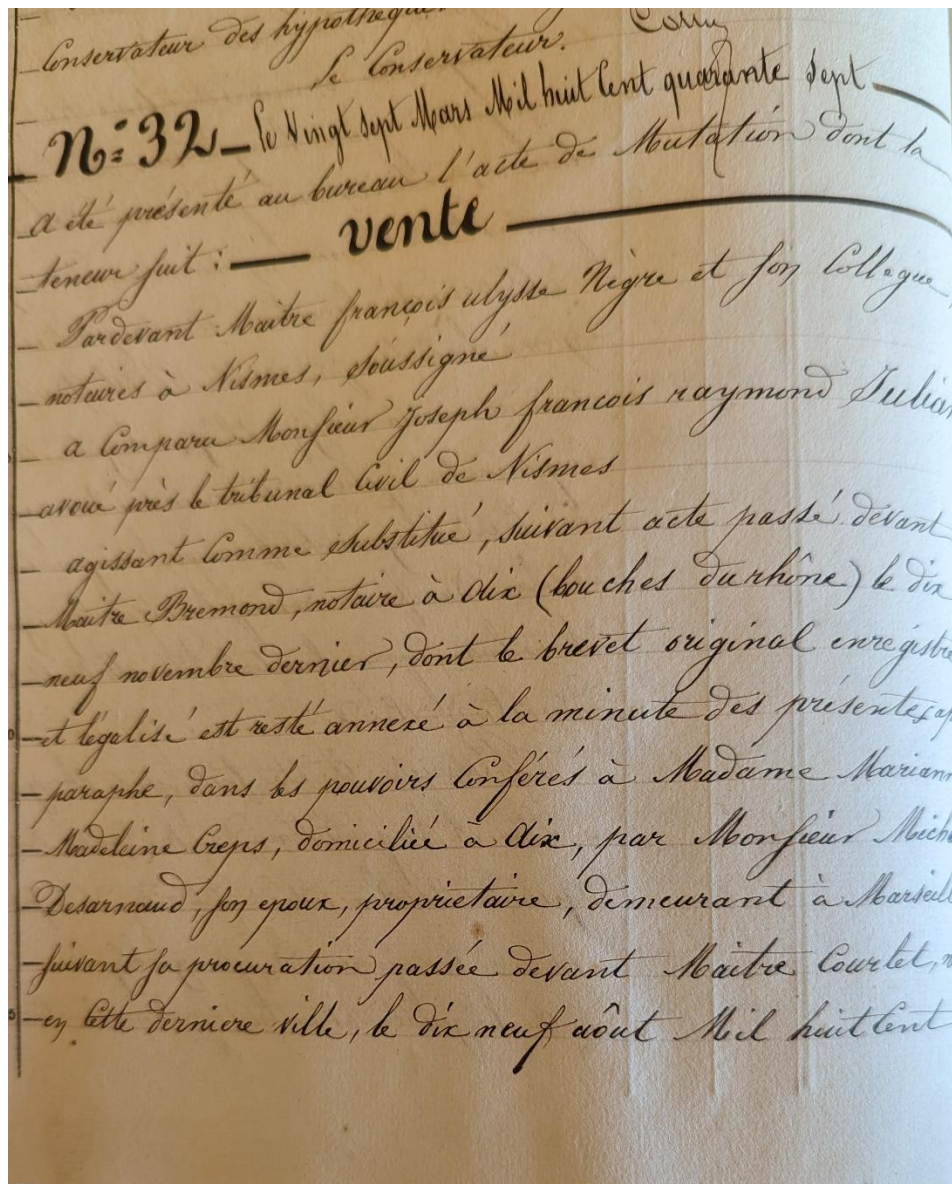 Conservateur des hypothèques
le Conservateur.
N° 32 le Vingt sept Mars Mil huit Cent quarante sept
a été présenté au bureau l'acte de Mutation dont la
teneur suit :
vente
Pardevant Maitre françois ulysse Nègre et son Collegue
notaires à Nismes, soussigné
a Comparu Monsieur Joseph francois raymond
avoué près le tribunal Civil de Nismes
agissant Comme substitué, suivant acte passé devant
Maitre Bremond, notaire à Aix (bouches durhône) le dix
neuf novembre dernier, dont le brevet original
et légalisé est resté annexé à la minute des présentes
paraphe, dans les pouvoirs Conférés à Madame
Madeleine Creps, domiciliée à Aix, par Monsieur
Desarnaud, son epoux, propriétaire, demeurant à
suivant sa procuration passée devant Maitre Courtet,
en Cette derniere ville, le dix neuf août Mil huit Cent